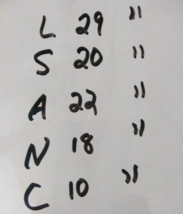 L 29 "
S 20 "
A 22 "
N 18 "
C 10 "